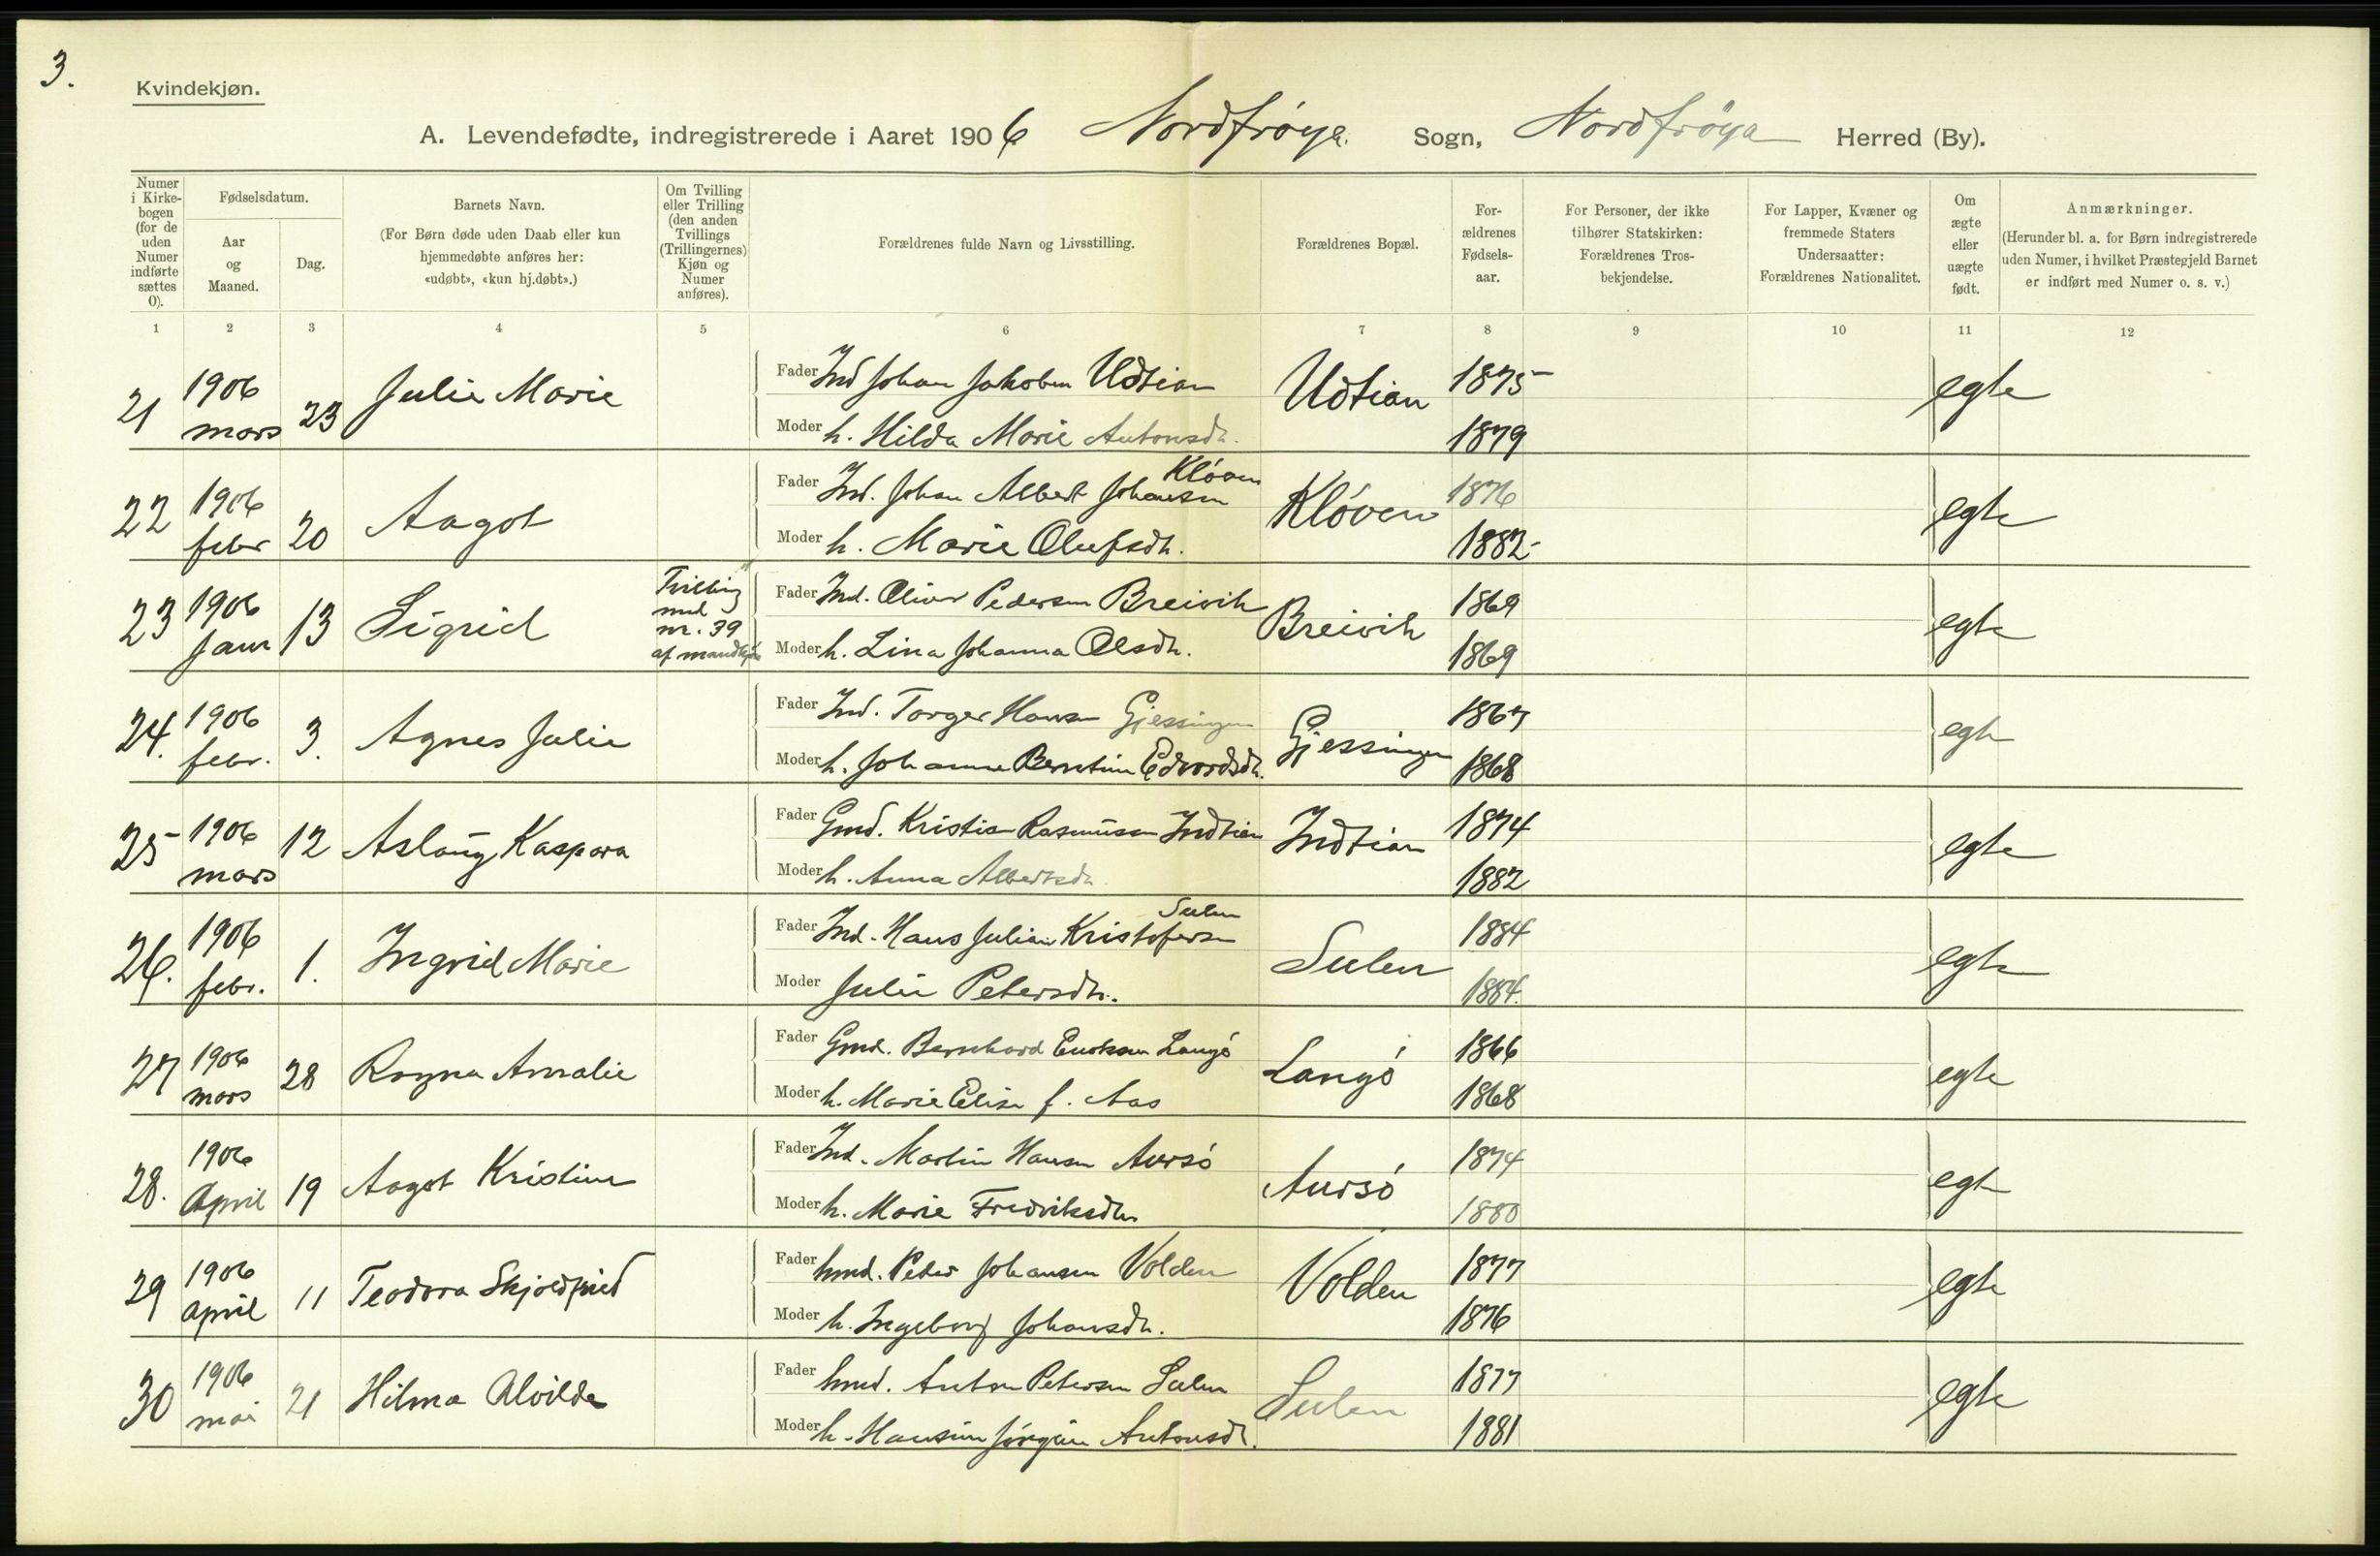 3.
Kvindekjøn.
A. Levendefødte, indregistrerede i Aaret 1906 Nordfrøya. Sogn, Nordfrøya Herred (By).
Numer i Kirkebogen (for de uden Numer indførte sættes 0).
Fødselsdatum.
Aar og Maaned.
Dag.
Barnets Navn.
(For Børn døde uden Daab eller kun hjemmedøbte anføres her: «udøbt», «kun hj.døbt».)
Om Tvilling eller Trilling (den anden Tvillings (Trillingernes) Kjøn og Numer anføres).
Forældrenes fulde Navn og Livsstilling.
Forældrenes Bopæl.
Forældrenes Fødselsaar.
For Personer, der ikke tilhører Statskirken: Forældrenes Trosbekjendelse.
For Lapper, Kvæner og fremmede Staters Undersaatter: Forældrenes Nationalitet.
Om ægte eller uægte født.
Anmærkninger.
(Herunder bl. a. for Børn indregistrerede uden Numer, i hvilket Præstegjeld Barnet er indført med Numer o. s. v.)
1 2 3 4 5 6 7 8 9 10 11 12
21 1906 mars 23 Julie Marie
Fader Ind Johan Jakobsen Udtian Udtian 1875 egte
Moder h. Hilda Marie Antonsdtr. 1879
22 1906 febr 20 Aagot
Fader Ind. Johan Albert Johansen Kløven Kløven 1876 egte
Moder h. Marie Olufsdtr. 1882
23 1906 Janr 13 Sigrid Tvilling med nr. 39 af mandkjøn
Fader Ind. Oliver Pedersen Breivik Breivik 1869 egte
Moder h. Lina Johanna Olsdtr. 1869
24. 1906 febr. 3. Agnes Julie
Fader Ind. Torger Hansen Gjessingen Gjessingen 1867 egte
Moder h. Johanna Berntine Edvardsdtr. 1868
25 1906 mars 12 Aslaug Kaspara
Fader Gmd. Kristian Rasmussen Indtian Indtian 1874 egte
Moder h. Anna Albertsdtr. 1882
26. 1906 febr. 1. Ingrid Marie
Fader Ind. Hans Julian Kristofersen Sulen Sulen 1884 egte
Moder Julie Petersdtr. 1884.
27 1906 mars 28 Ragna Amalie
Fader Gmd. Bernhard Langø Langø 1866 egte
Moder h. Marie Elise f. Aas 1868
28. 1906 April 19 Aagot Kristine
Fader Ind. Martin Hansen Aursø Aursø 1874 egte
Moder h. Marie Fredriksdtr 1880
29 1906 april 11 Teodora Skjoldfrid
Fader hmd. Peter Johansen Volden Volden 1877 egte
Moder h. Ingeborg Johansdtr. 1876
30 1906 mai 21 Hilma Alvilda
Fader hmd. Anton Petersen Sulen Sulen 1877 egte
Moder h. Hansine Jørgine Antonsdtr. 1881